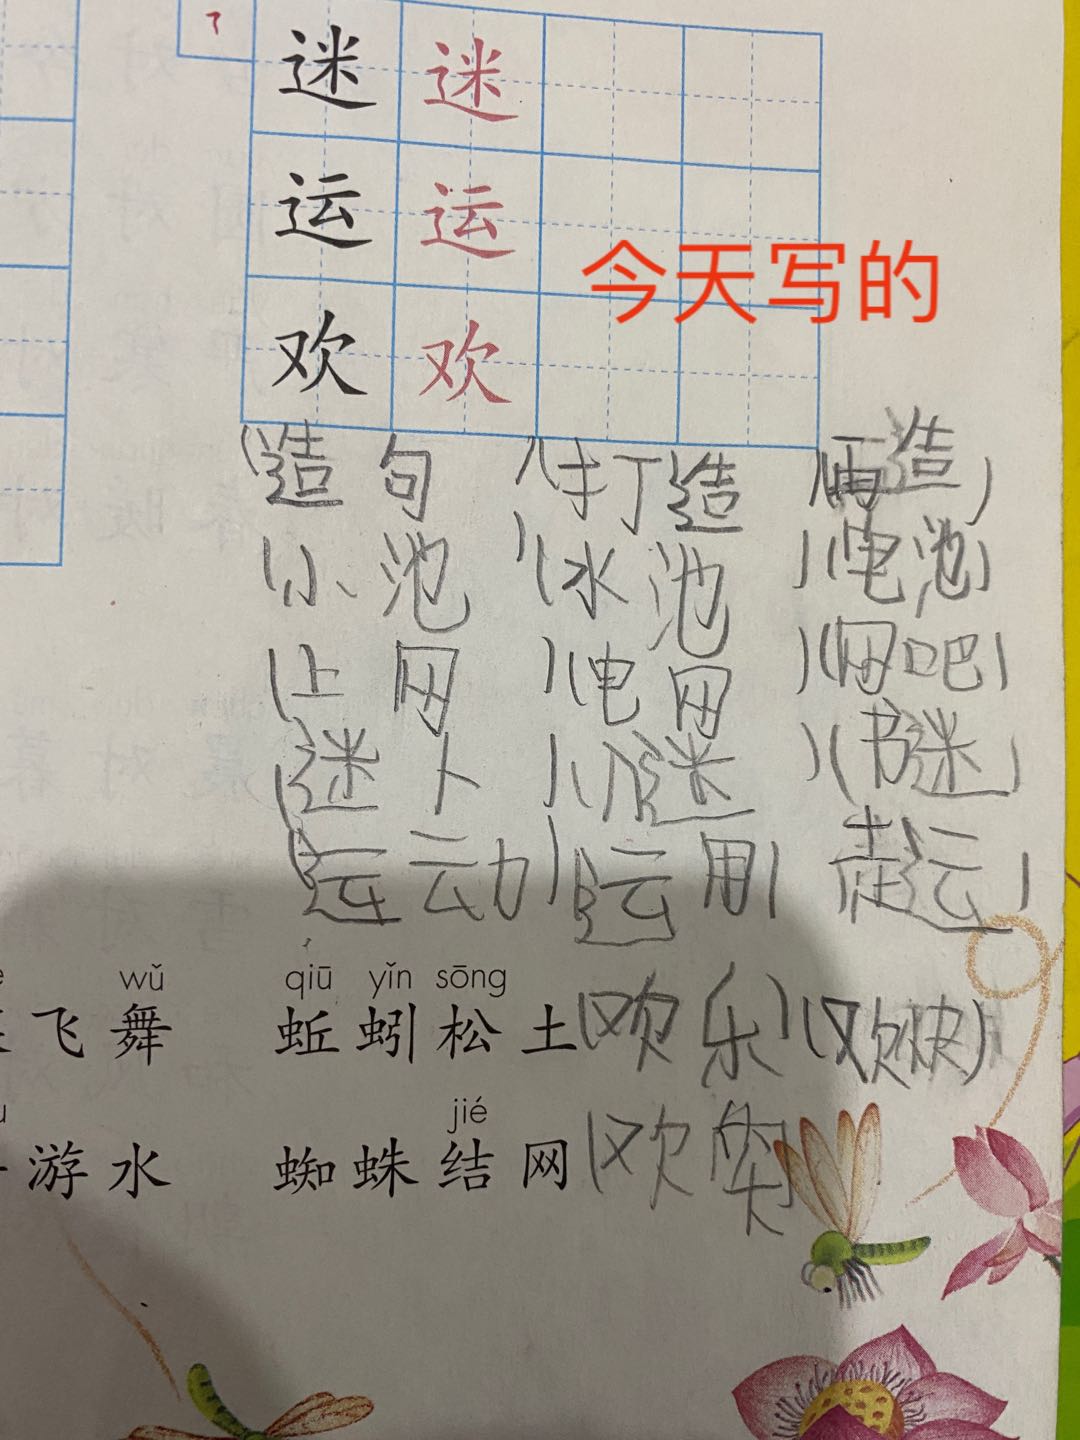 迷 迷
运 运
今天写的
欢 欢
(造句)(打造)(再造)
(小池)(水池)(电池)
(上网)(电网)(网吧)
(迷卜)(小迷)(书迷)
(运动)(运用)走运)
wǔ qiū yǐn sōng
飞舞 蚯蚓松土(欢乐)(欢快)
jié
游水 蜘蛛结网(欢笑)